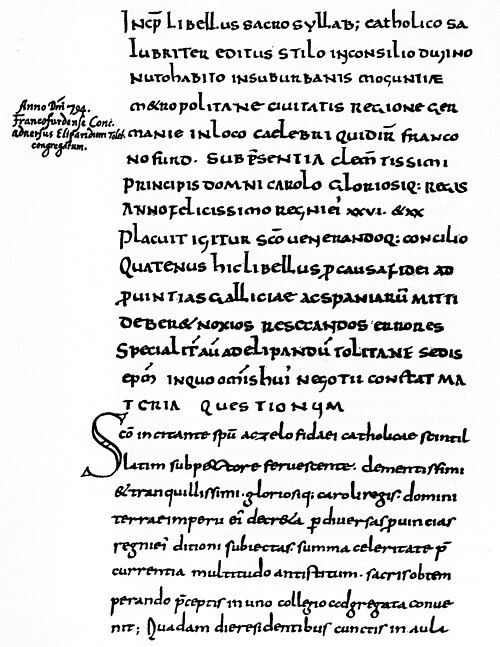 INCP LIBELLUS SACROSYLLAB; CATHOLICO SA
LUBRITER EDITUS STILO INCONSILIO DIUINO
NUTOHABITO INSUBURBANIS MOGUNTIÆ
M&ROPOLITANE CIUITATIS REGIONE GER
MANIE INLOCO CAELEBRI QUIDIR̄ FRANCO
NOFURD. SUBP̄SENTIA CLEM̄TISSIMI
PRINCIPIS DOMNI CAROLO GLORIOSIQ: REGIS
ANNO FELICISSIMO REGNI EI' XXVI. &XX
PLACUIT IGITUR SC̄O UENERANDOQ: CONCILIO
QUATENUS HIC LIBELLUS P CAUSA FIDEI AD
PUINTIAS GALLICIAE AC SPANIARŪ MITTI
DEBER& NOXIOS RESECANDOS ERRORES
SPECIALIT̄ AŪ ADELIPANDŪ TOLITANE SEDIS
EPM̄ INQUO OM̄IS HUI' NEGOTII CONSTAT MA
TERIA QUESTIONUM
Anno Dn̄i 794.
Francofurdense Conc.
adversus Elipandum Tolet.
congregatum.
Sc̄o incitante sp̄u ac zelo fidaei catholicae scintil
latim subpectore feruescente. clementissimi
& tranquillissimi. gloriosiq; caroli regis. domini
terrae imperii ei' decreta p diuersas puincias
regni ei' ditioni subiectas. summa celeritate p̄
currentia multitudo antistitum. sacris obtem
perando p̄ceptis in uno collegio cōgregata conue
nit; Quadam die residentibus cunctis in aula